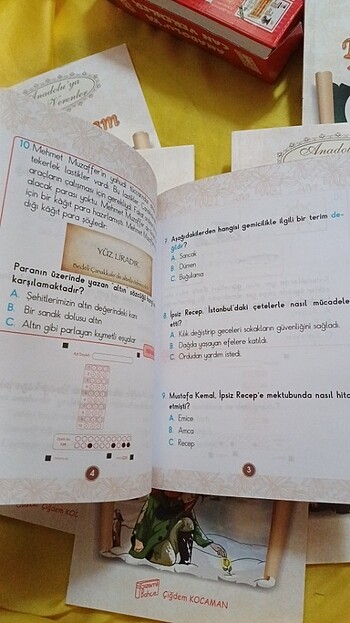 ANADOLU'YA
CAN VERENLER
Anadolu'ya
Verenler
Anadolu
10. Mehmet Muzaffer'in yahudi
tekerlek lastikler vardı. Bu lastikler
araçların çalışması için gerekliydi.
alacak parası yoktu. Mehmet Muzaffer
için bir kâğıt para hazırlamıştı. Mehmet
dığı kâğıt para şöyledir:
YÜZ LİRADIR
Bedeli Çanakkale'de altın
Paranın üzerinde yazan altın sözcüğü
karşılamaktadır?
A Şehitlerimizin altın değerindeki kan
B Bir sandık dolusu altın
C Altın gibi parlayan kıymetli eşyalar
4
7. Aşağıdakilerden hangisi gemicilikle ilgili bir terim de-
ğildir?
A. Sancak
B. Dümen
C. Buğulama
8. İpsiz Recep, İstanbul'daki çetelerle nasıl mücadele
etti?
A. Kılık değiştirip geceleri sokakların güvenliğini sağladı.
B. Dağda yaşayan efelere katıldı.
C. Ordudan yardım istedi.
9. Mustafa Kemal, İpsiz Recep'e mektubunda nasıl
etmişti?
A. Emice
B. Amca
C. Recep
3
Bahçe
Çiğdem KOCAMAN
Çiğdem